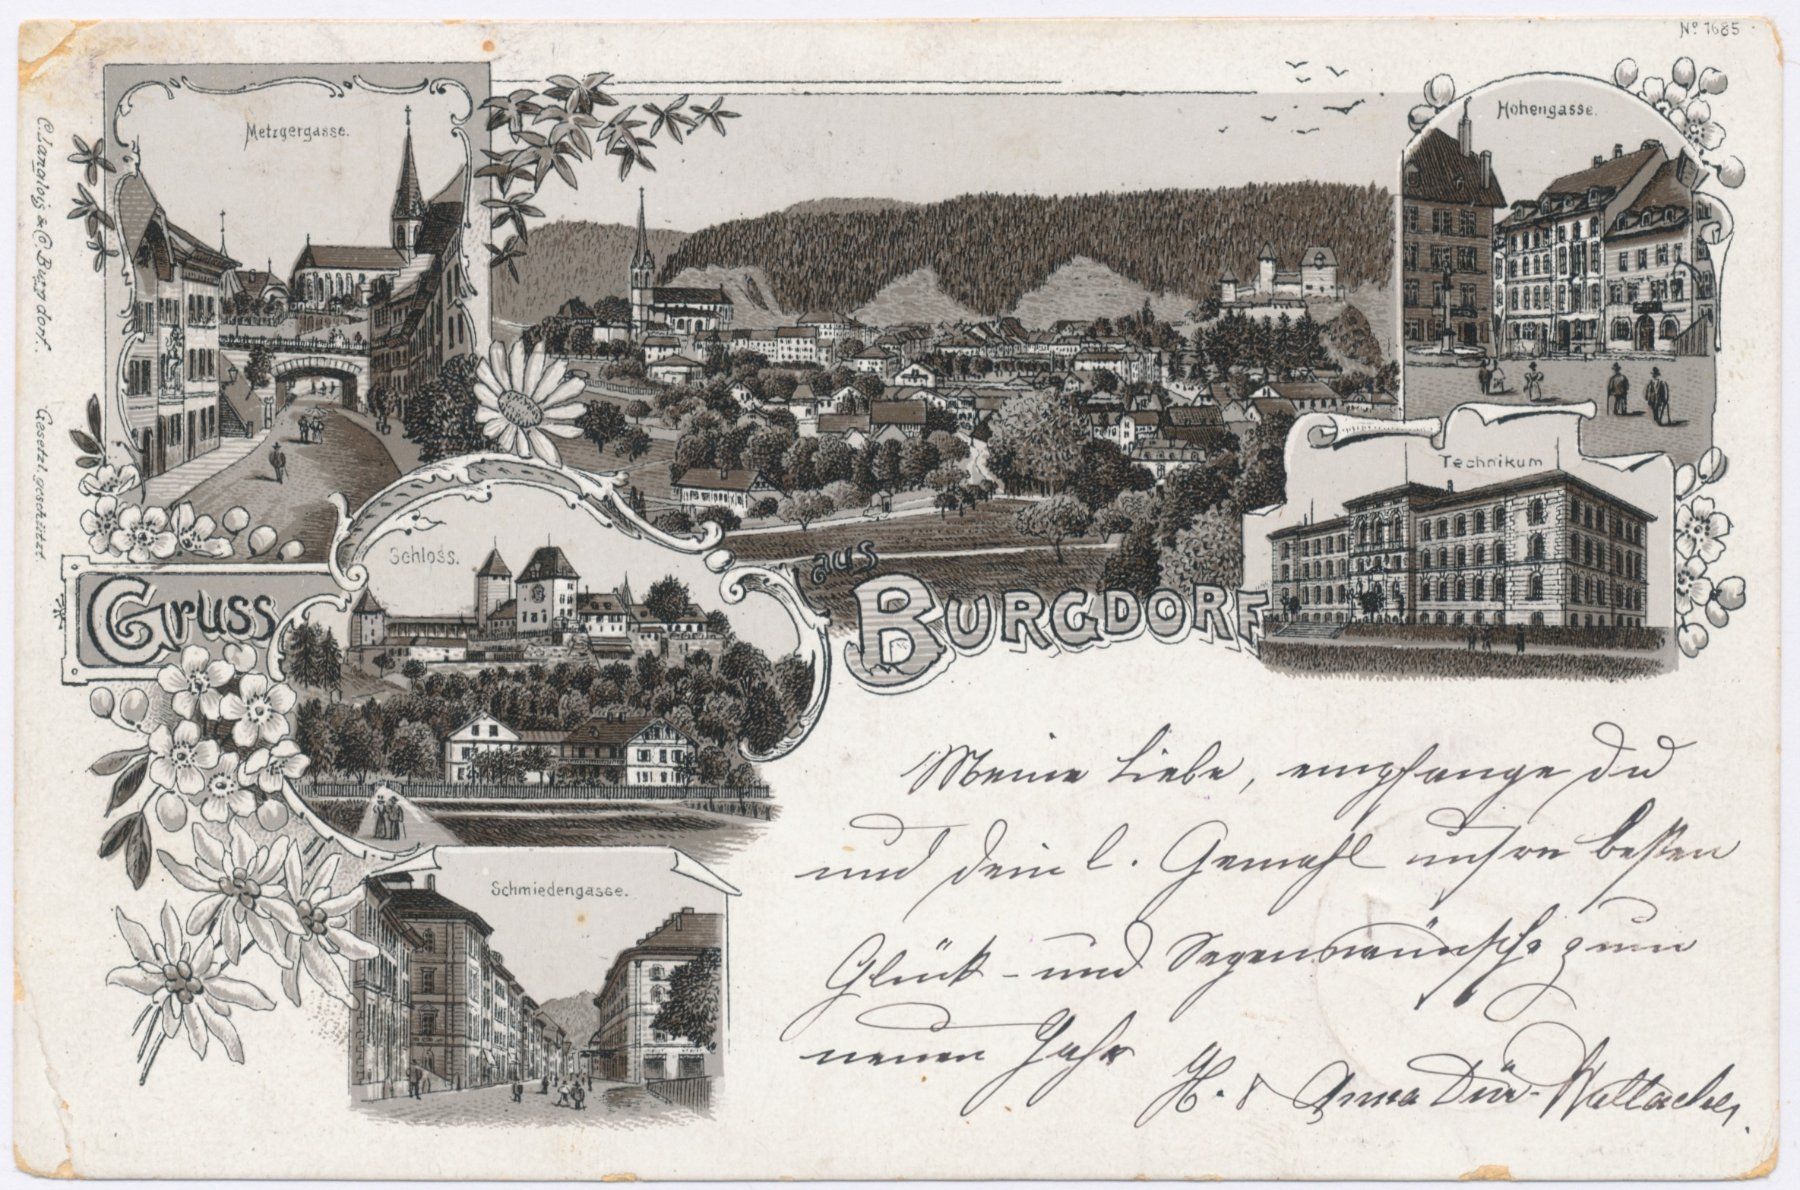 Nº 1685
Metzgergasse.
Hohengasse.
C. Langlois & C. Burgdorf. Gesetzl. geschützt.
Technikum
Schloss.
Gruss aus Burgdorf
Schmiedengasse.
Meine Liebe, empfange du
und dein l. Gemahl unsre besten
Glück- und Segenswünsche zum
neuen Jahr
H. & Anna Dür-